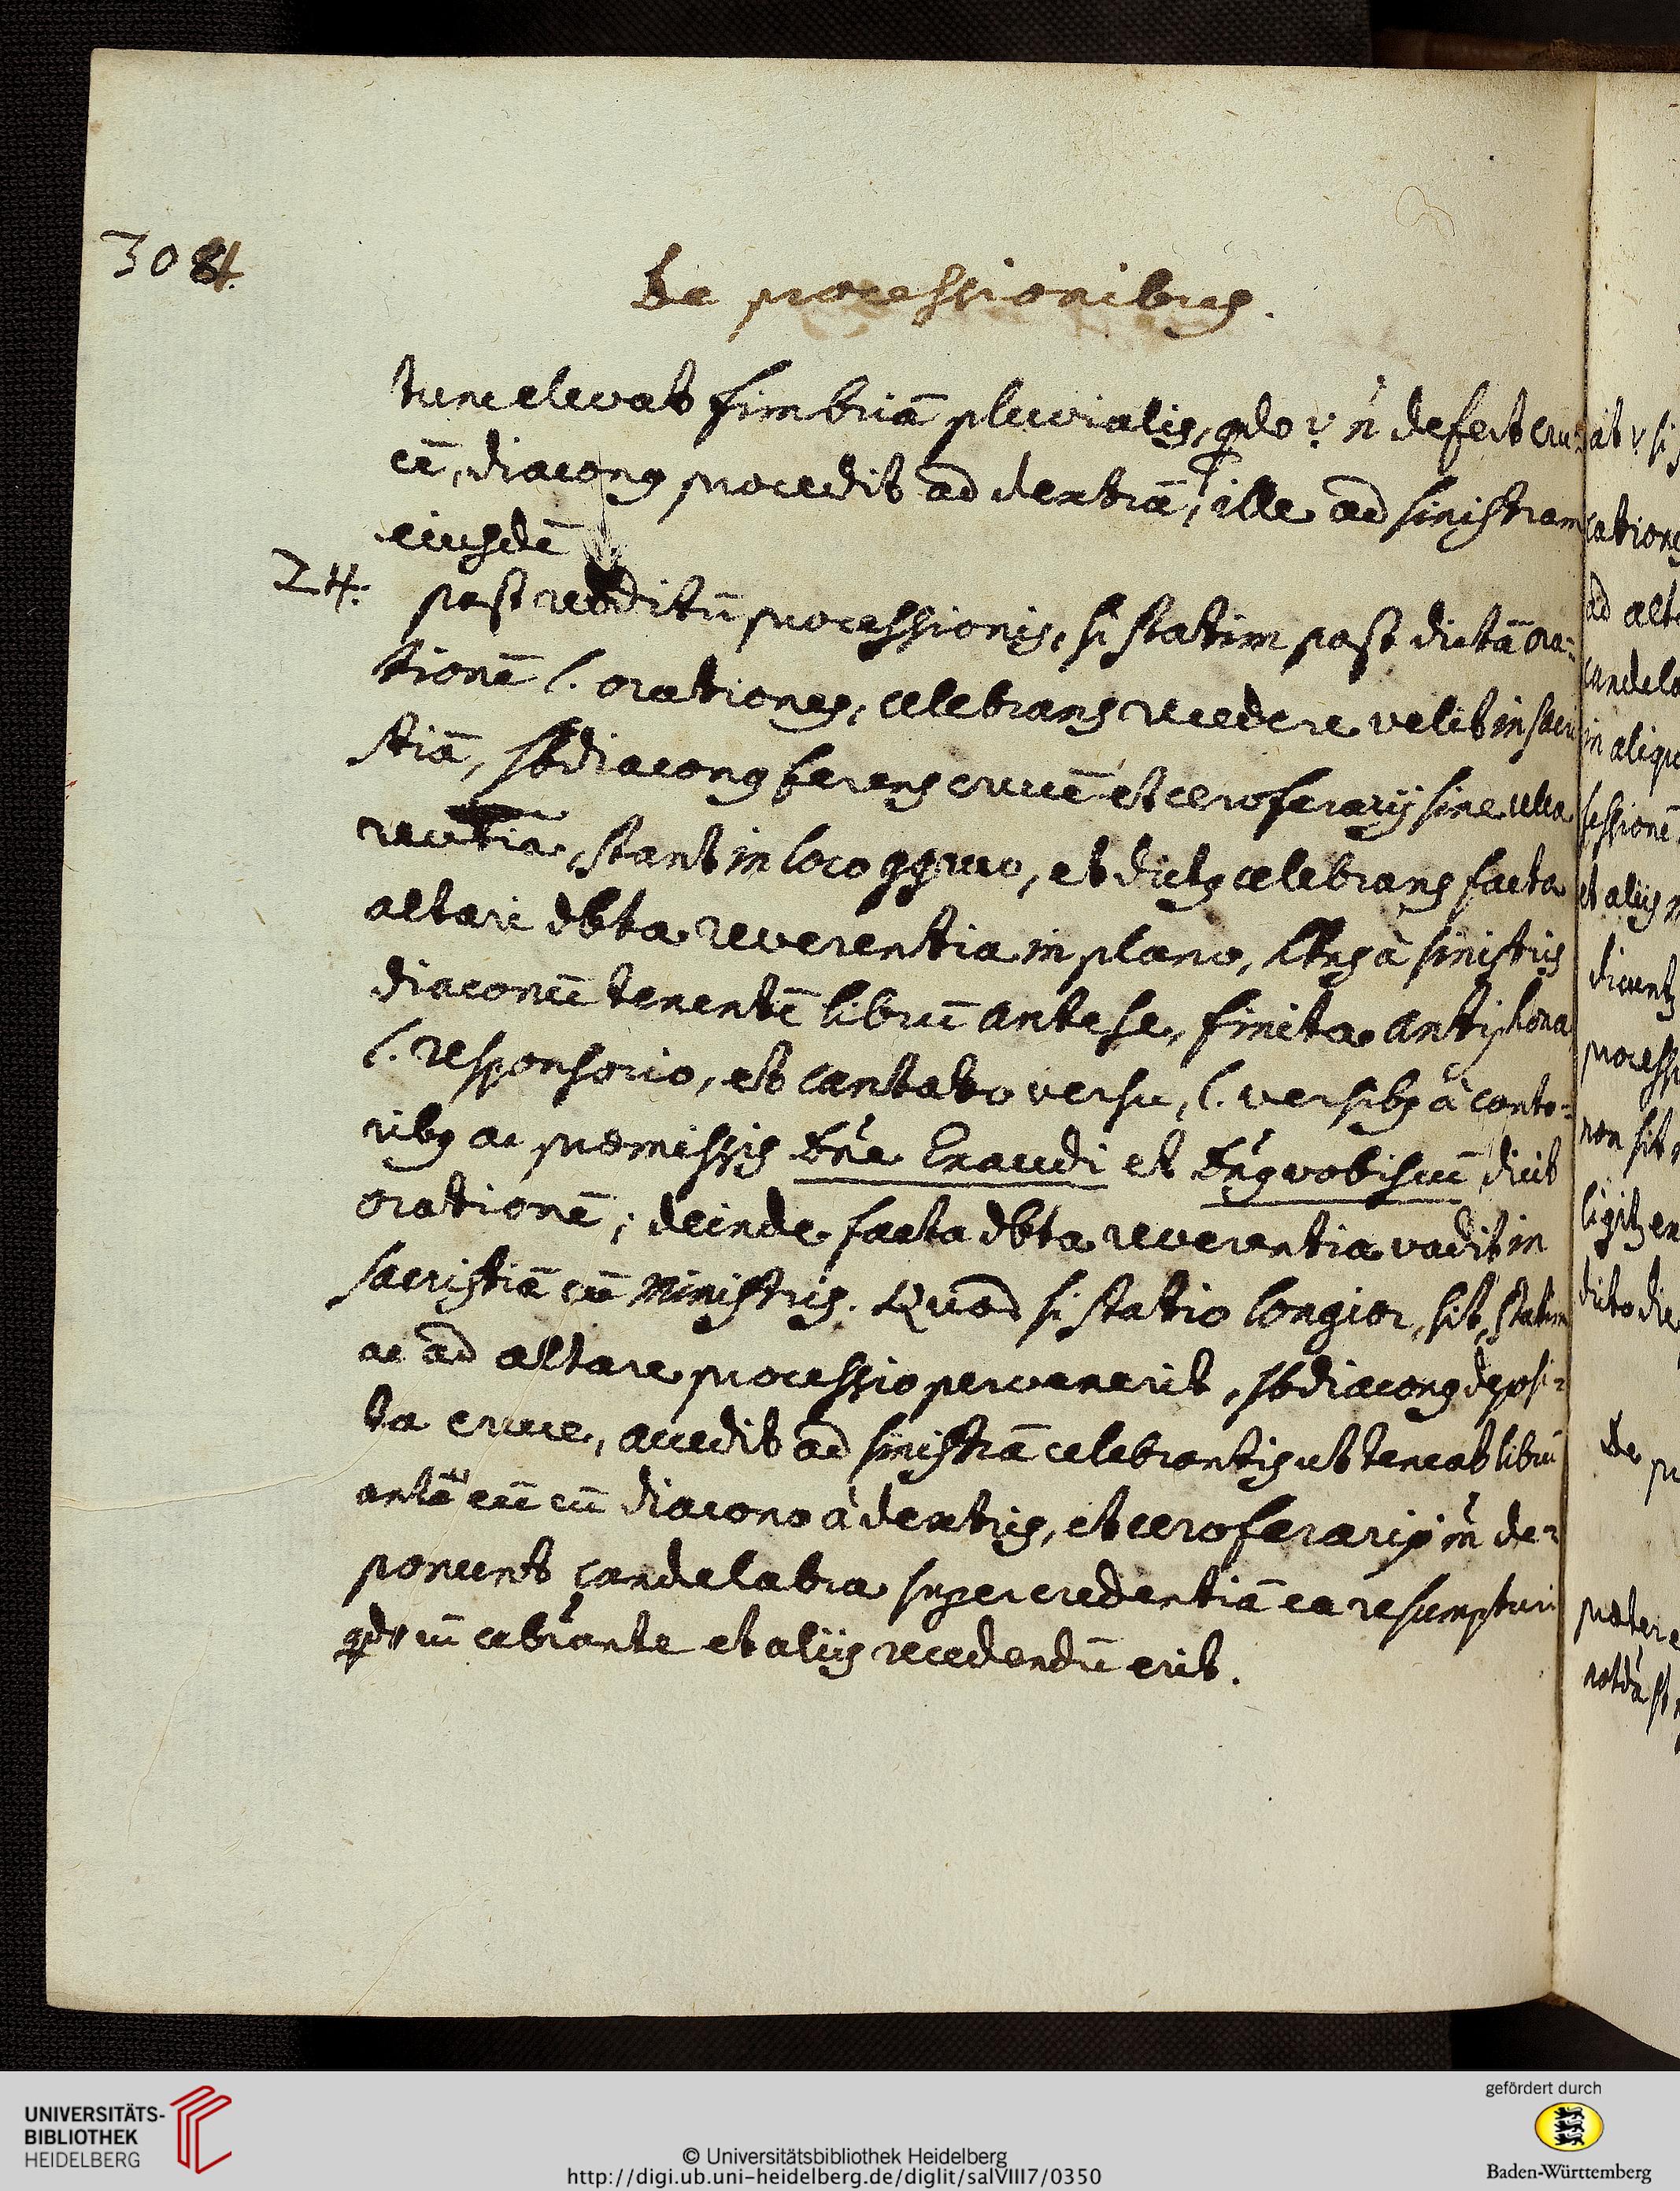 308.
De processionibus.
tunc elevat fimbriā pluvialis, qdo v. n̄ defert cru=
cē, diacong procedit ad dextrā, ille ad sinistram
eiusdē
24. post reditū processionis, si statim post dictā ora=
tionē l. orationes, celebrans recedere velit in sacri
stiā, sbdiacong ferens crucē et ceroferarij sine ulla
, stant in loco ggruo, et dictg celebrans facta
altari dbta reverentia in plano, hns à sinistris
diaconū tenentē librū ante se, finita antiphona
l. responsorio, et cantato versu, l. versibg à canto=
ribg ac præmissis Dne Exaudi et Dng vobiscū dicit
orationē; deinde facta dbta reverentia vadit in
sacristiā cū Ministris. Quod si statio longior sit, statim
ac ad altare processio pervenerit, sbdiacong deposi=
ta cruce, accedit ad sinistrā celebrantis ut teneat librū
ante eū cū diacono à dextris, et ceroferarij de=
ponunt candelabra super credentiā ea resumpturi
qdo cū cebrante et aliis recedendū erit.
ad alt
in aliqu
sessionē
et aliis
dicunt
processi
non sit
dicto die
De
UNIVERSITÄTS-
BIBLIOTHEK
HEIDELBERG
© Universitätsbibliothek Heidelberg
http://digi.ub.uni-heidelberg.de/diglit/salVIII7/0350
gefördert durch
Baden-Württemberg